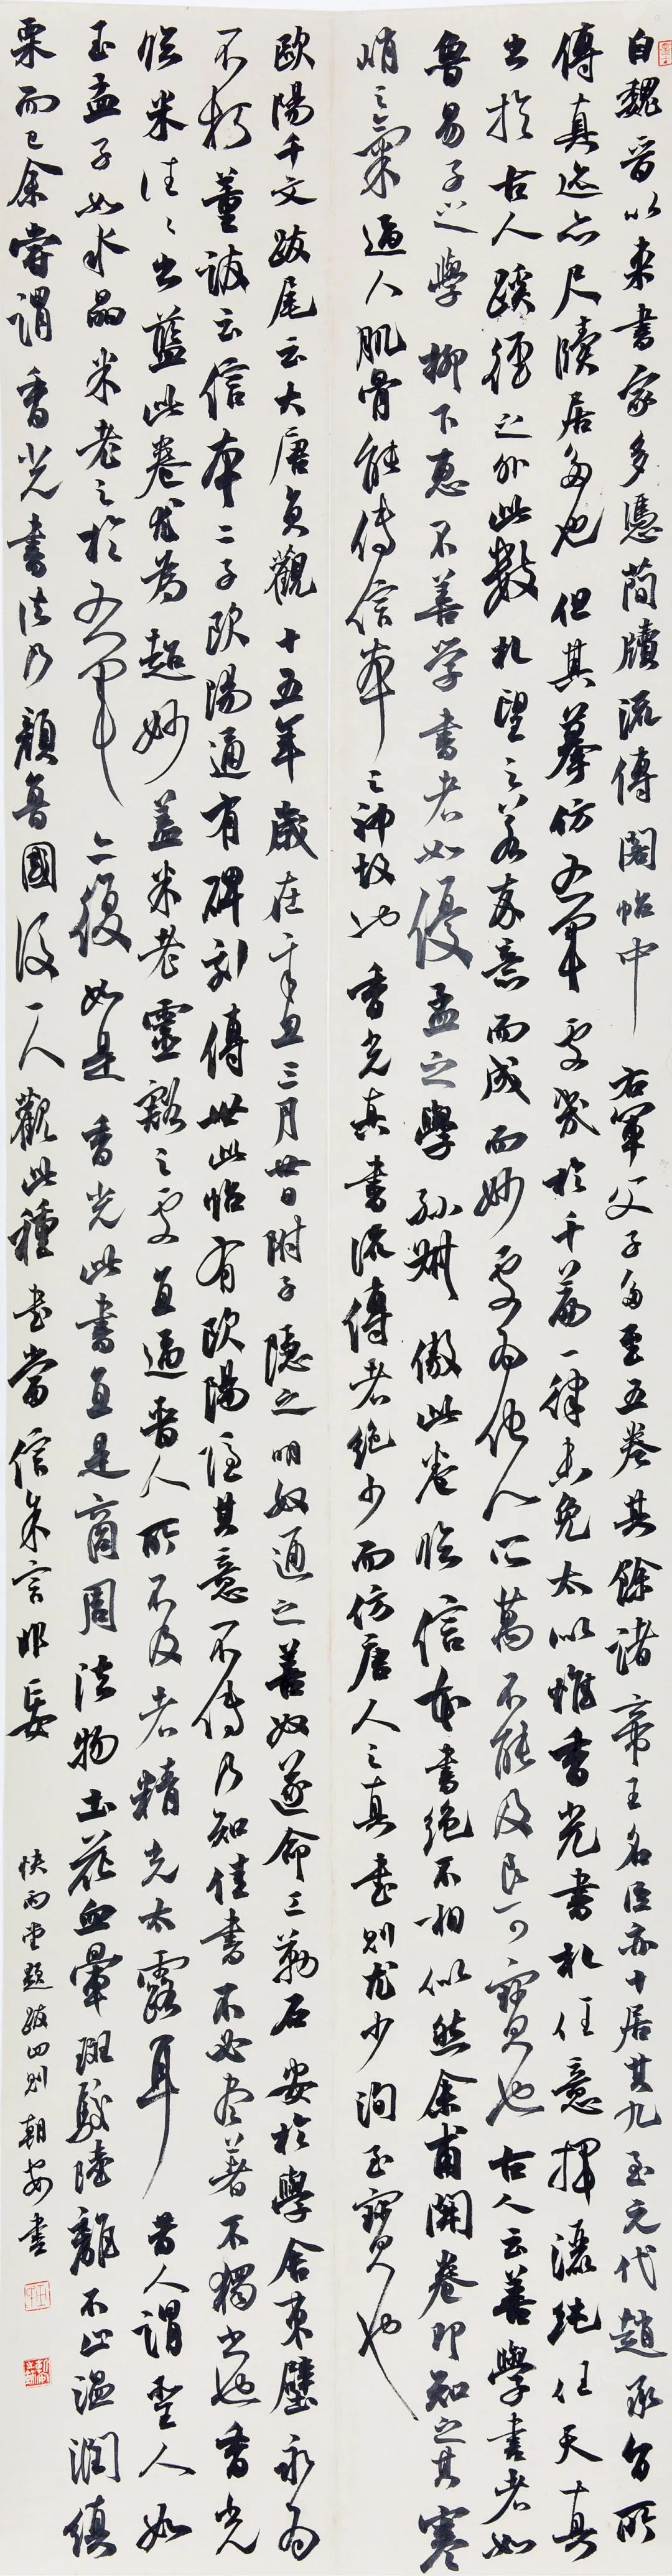 自魏晋以来書家多憑蕳牘流傳閣帖中右軍父子多至五卷其餘諸帝王名臣亦十居其九至元代趙承旨所
傳真迹亦尺牘居多也但其摹仿右軍受幾於千篇一律未免太似惟香光書札任意揮灑純任天真
出於古人蹊徑之外此數札望之若率意而成而妙處為他人之萬不能及良可寶也古人云善學書者如
魯男子之學柳下惠不善学書者如優孟之學孫叔傲此卷臨信本書絶不相似然余甫開卷即知之其寒
峭之氣逼人肌骨能傳信本之神故也香光真書流傳者絶少而仿唐人之真書則尤少洵至寶也
歐陽千文跋尾云大唐貞觀十五年歲在辛丑三月廿日附子隱之明奴通之善奴遂命工勒石安於學舍東壁永為
不朽董跋云信本二子欧陽通有碑刻傳世此帖有欧陽隱其意不傳乃知佳書不必尽著不獨書也香光
臨米往々出藍此卷尤為超妙蓋米老靈谿之受直逼晋人所不及者精光太露耳昔人謂聖人如
玉孟子如水晶米老之於右軍亦復如是香光此書直是商周法物土花血暈斑駁陸離不止温潤縝
栗而已余嘗謂香光書法乃顔魯國後一人觀此種書當信余言非妄
快雨堂題跋四則朝安書